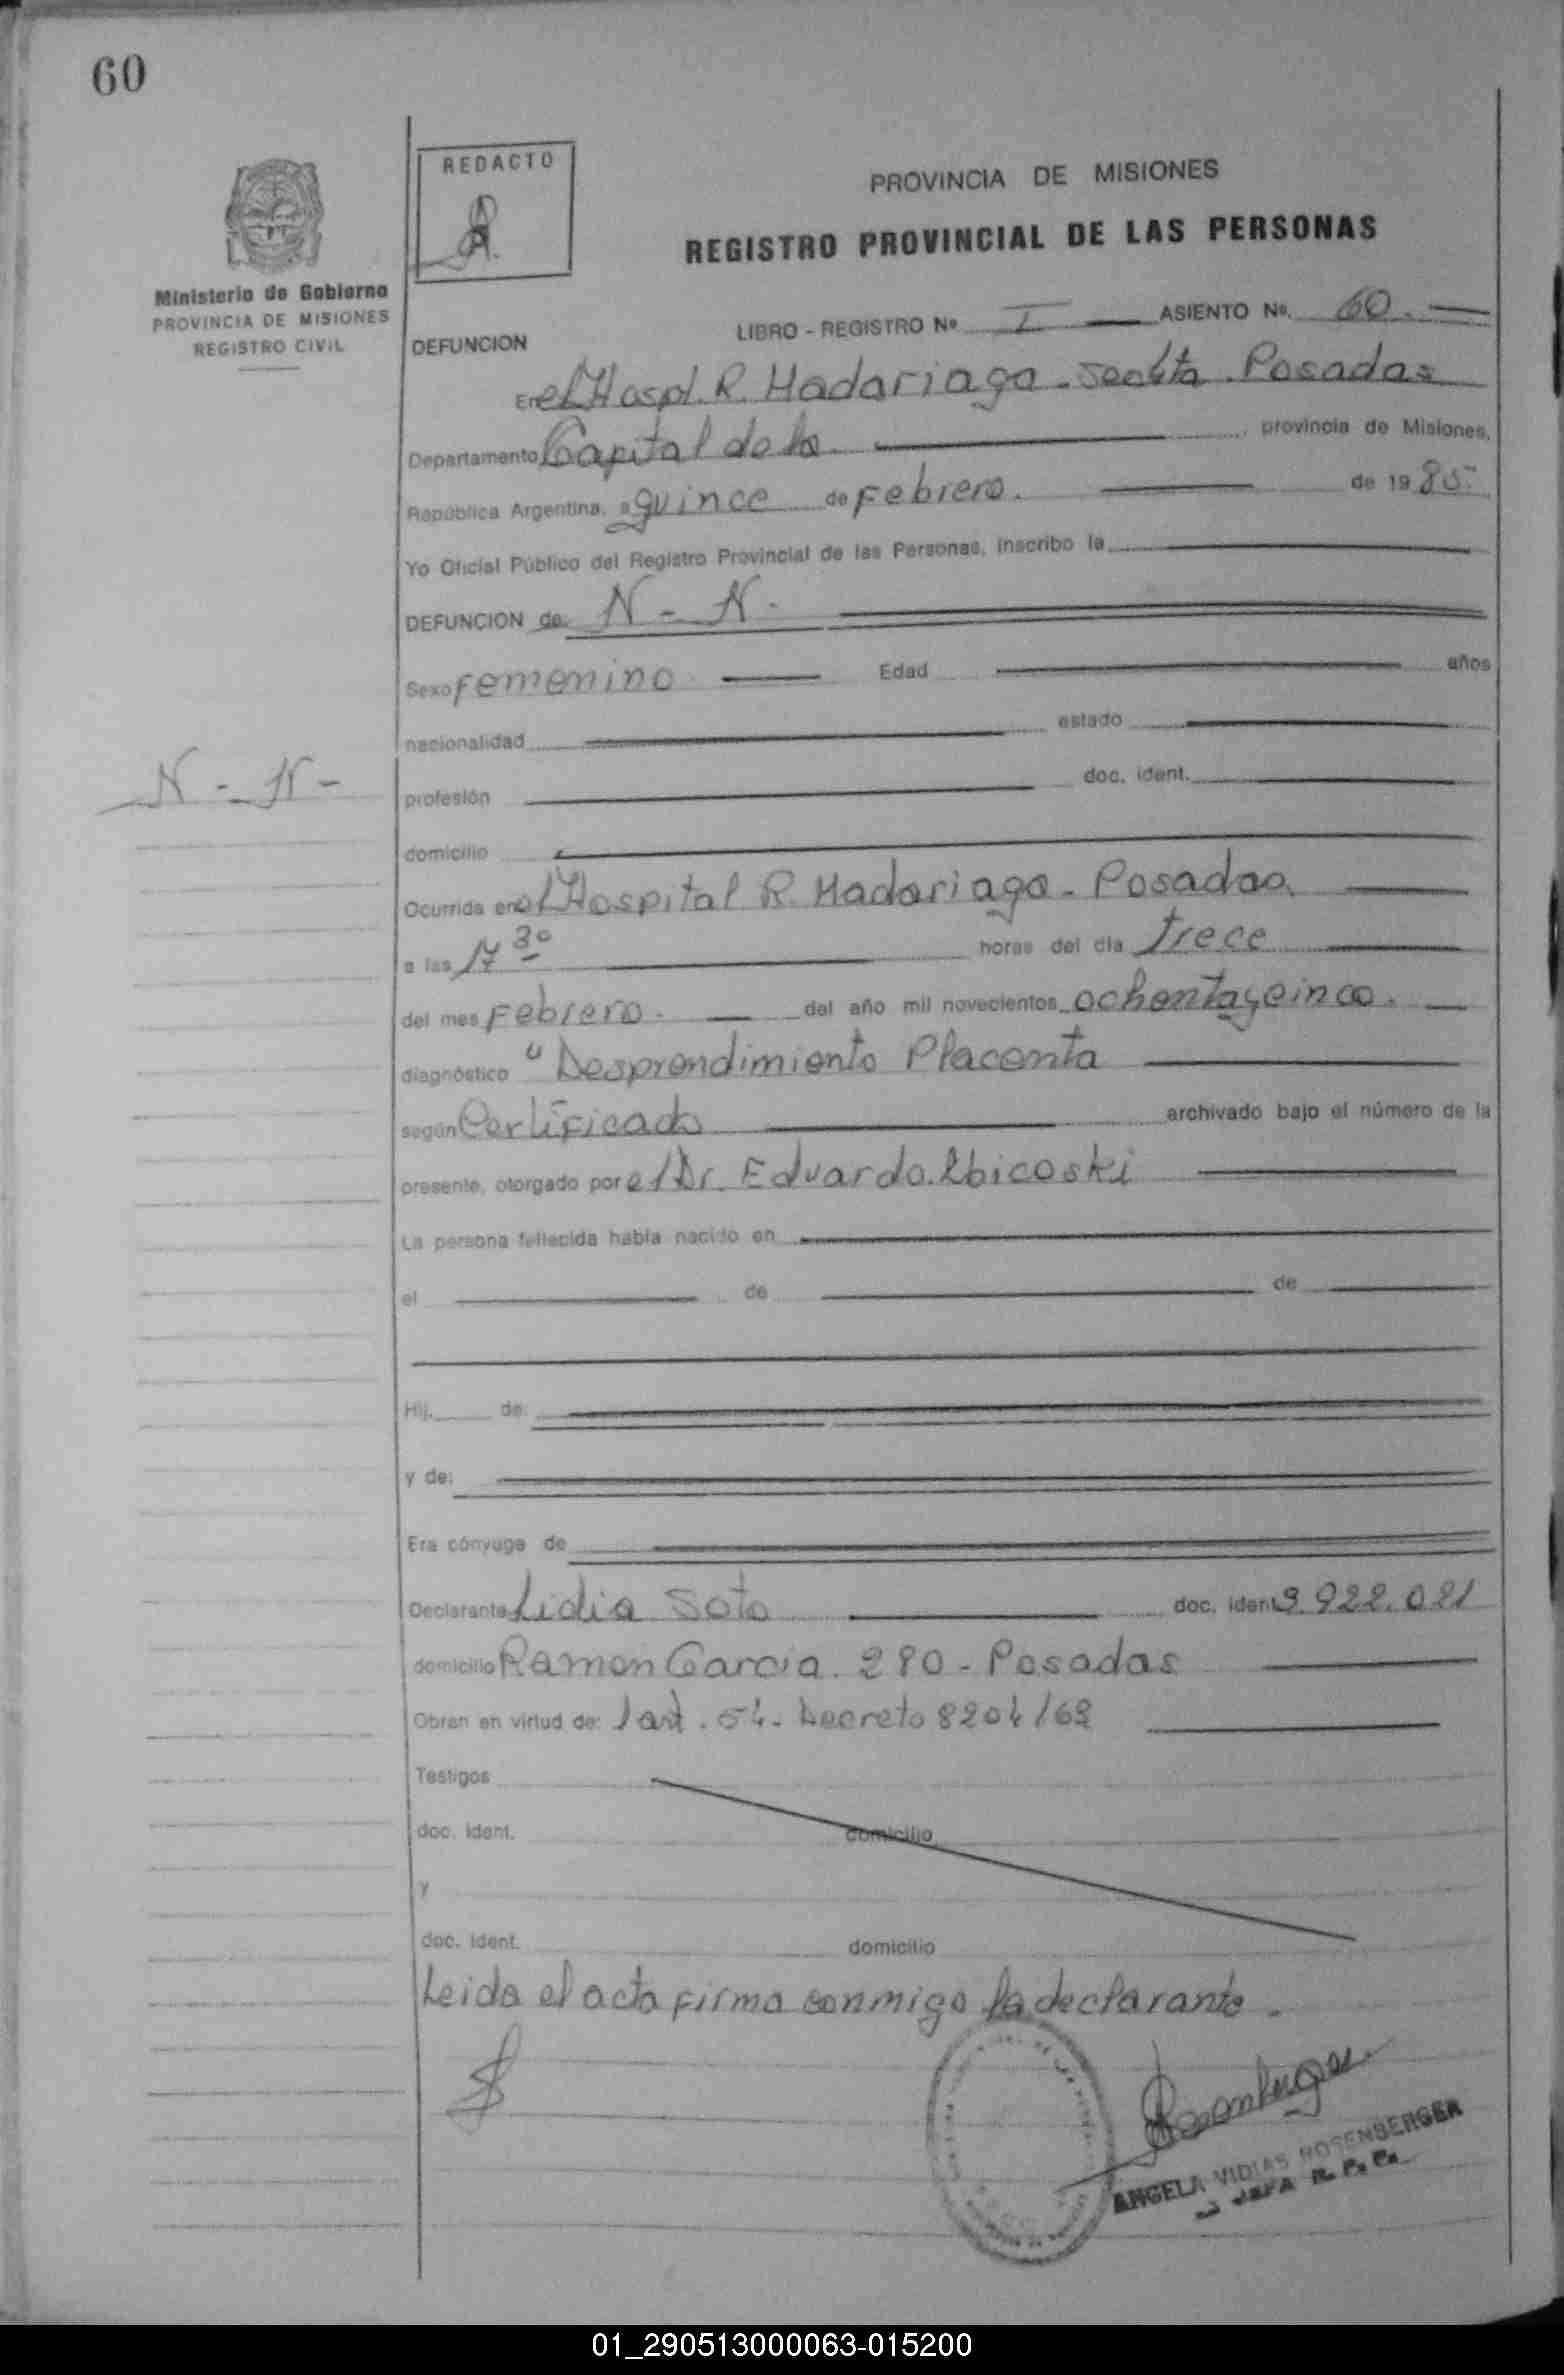 60
REDACTO
PROVINCIA DE MISIONES
REGISTRO PROVINCIAL DE LAS PERSONAS
Ministerio de Gobierno
PROVINCIA DE MISIONES
REGISTRO CIVIL
LIBRO - REGISTRO Nº I ASIENTO Nº. 60.
DEFUNCION
En el Hospl. R. Madariaga - Posadas
Departamento Capital de la provincia de Misiones,
República Argentina, a quince de Febrero. de 19 85
Yo Oficial Público del Registro Provincial de las Personas, inscribo la
DEFUNCION de: N - N.
Sexo Femenino Edad años
nacionalidad estado
N - N -
profesión doc. ident.
domicilio
Ocurrida en el Hospital R. Madariaga - Posadas.
a las 17 30 horas del día Trece
del mes Febrero. del año mil novecientos ochenta y cinco.
diagnóstico "Desprendimiento Placenta
según Certificado archivado bajo el número de la
presente, otorgado por el Dr. Eduardo
La persona fallecida había nacido en
el de de
Hij. de:
y de:
Era cónyuge de
Declarante Lidia Soto doc. ident. 9.922.021
domicilio Ramon Garcia. 290 - Posadas
Obran en virtud de: art. 54. Decreto 8204/63
Testigos
doc. ident. domicilio
y
doc. ident. domicilio
Leida el acta firma conmigo la declarante.
ANGELA VIDIAS ROSENBERGER
JEFA R. P. P.
01_290513000063-015200